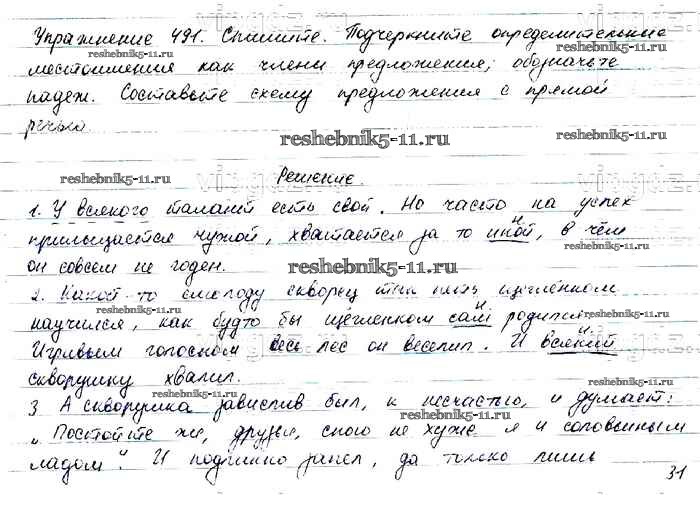 Упражнение 491. Спишите. Подчеркните определительные
местоимения как члены предложения, обозначьте
падеж. Составьте схему предложения с прямой
речью.
reshebnik5-11.ru
Решение.
1. У всякого талант есть свой. Но часто на успех
прильщается чужой, хватается за то иной, в чём
он совсем не годен.
2. Какой-то смолоду скворец так петь щегленком
научился, как будто бы щегленком сам родился.
Игривым голоском весь лес он веселил. И всякий
скворушку хвалил.
3 А скворушка завислив был, к несчастью, и думает:
„Постойте же, друзья, спою не хуже я и соловьиным
ладом". И подлинно запел, да только лишь
31